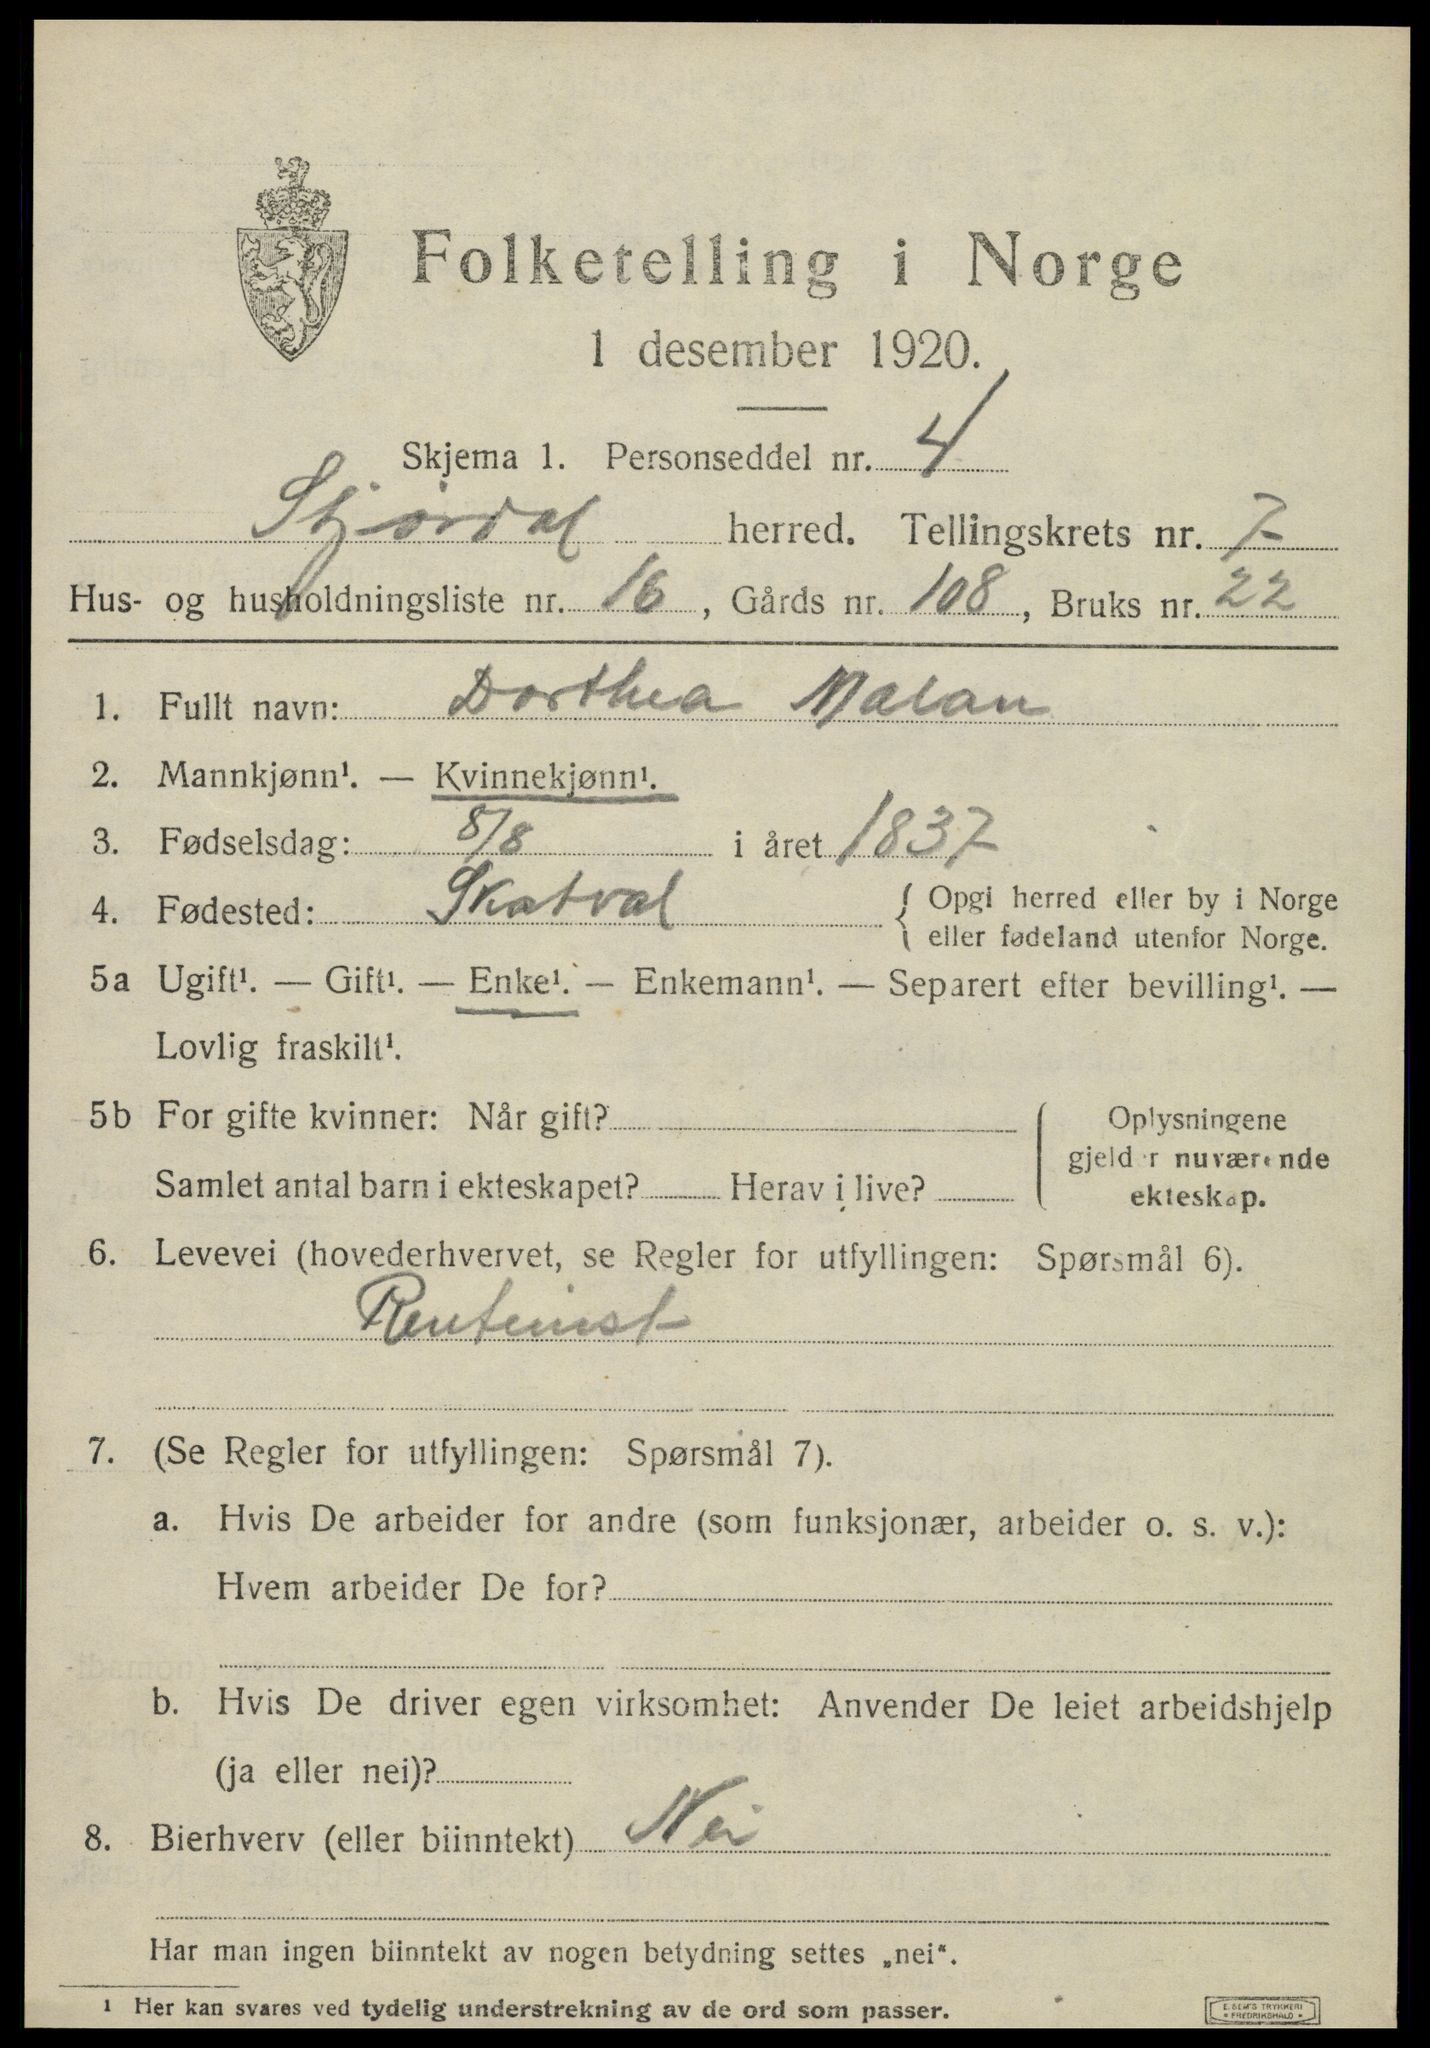 Folketelling i Norge
1 desember 1920.
Skjema 1. Personseddel nr. 4
Stjørdal herred. Tellingskrets nr. 7
Hus- og husholdningsliste nr. 16, Gårds nr. 108, Bruks nr. 22
1. Fullt navn: Dorthea Malan
2. Mannkjønn¹. — Kvinnekjønn¹.
3. Fødselsdag: 8/8 i året 1837
4. Fødested: Skatval { Opgi herred eller by i Norge
eller fødeland utenfor Norge.
5a Ugift¹. — Gift¹. — Enke¹. — Enkemann¹. — Separert efter bevilling¹. —
Lovlig fraskilt¹.
5b For gifte kvinner: Når gift? Oplysningene
gjelder nuværende
Samlet antal barn i ekteskapet? Herav i live? ekteskap.
6. Levevei (hovederhvervet, se Regler for utfyllingen: Spørsmål 6).
Rentenist
7. (Se Regler for utfyllingen: Spørsmål 7).
a. Hvis De arbeider for andre (som funksjonær, arbeider o. s. v.):
Hvem arbeider De for?
b. Hvis De driver egen virksomhet: Anvender De leiet arbeidshjelp
(ja eller nei)?
8. Bierhverv (eller biinntekt) Nei
Har man ingen biinntekt av nogen betydning settes „nei“.
1 Her kan svares ved tydelig understrekning av de ord som passer.
E. SEM'S TRYKKERI
• FREDRIKSHALD •